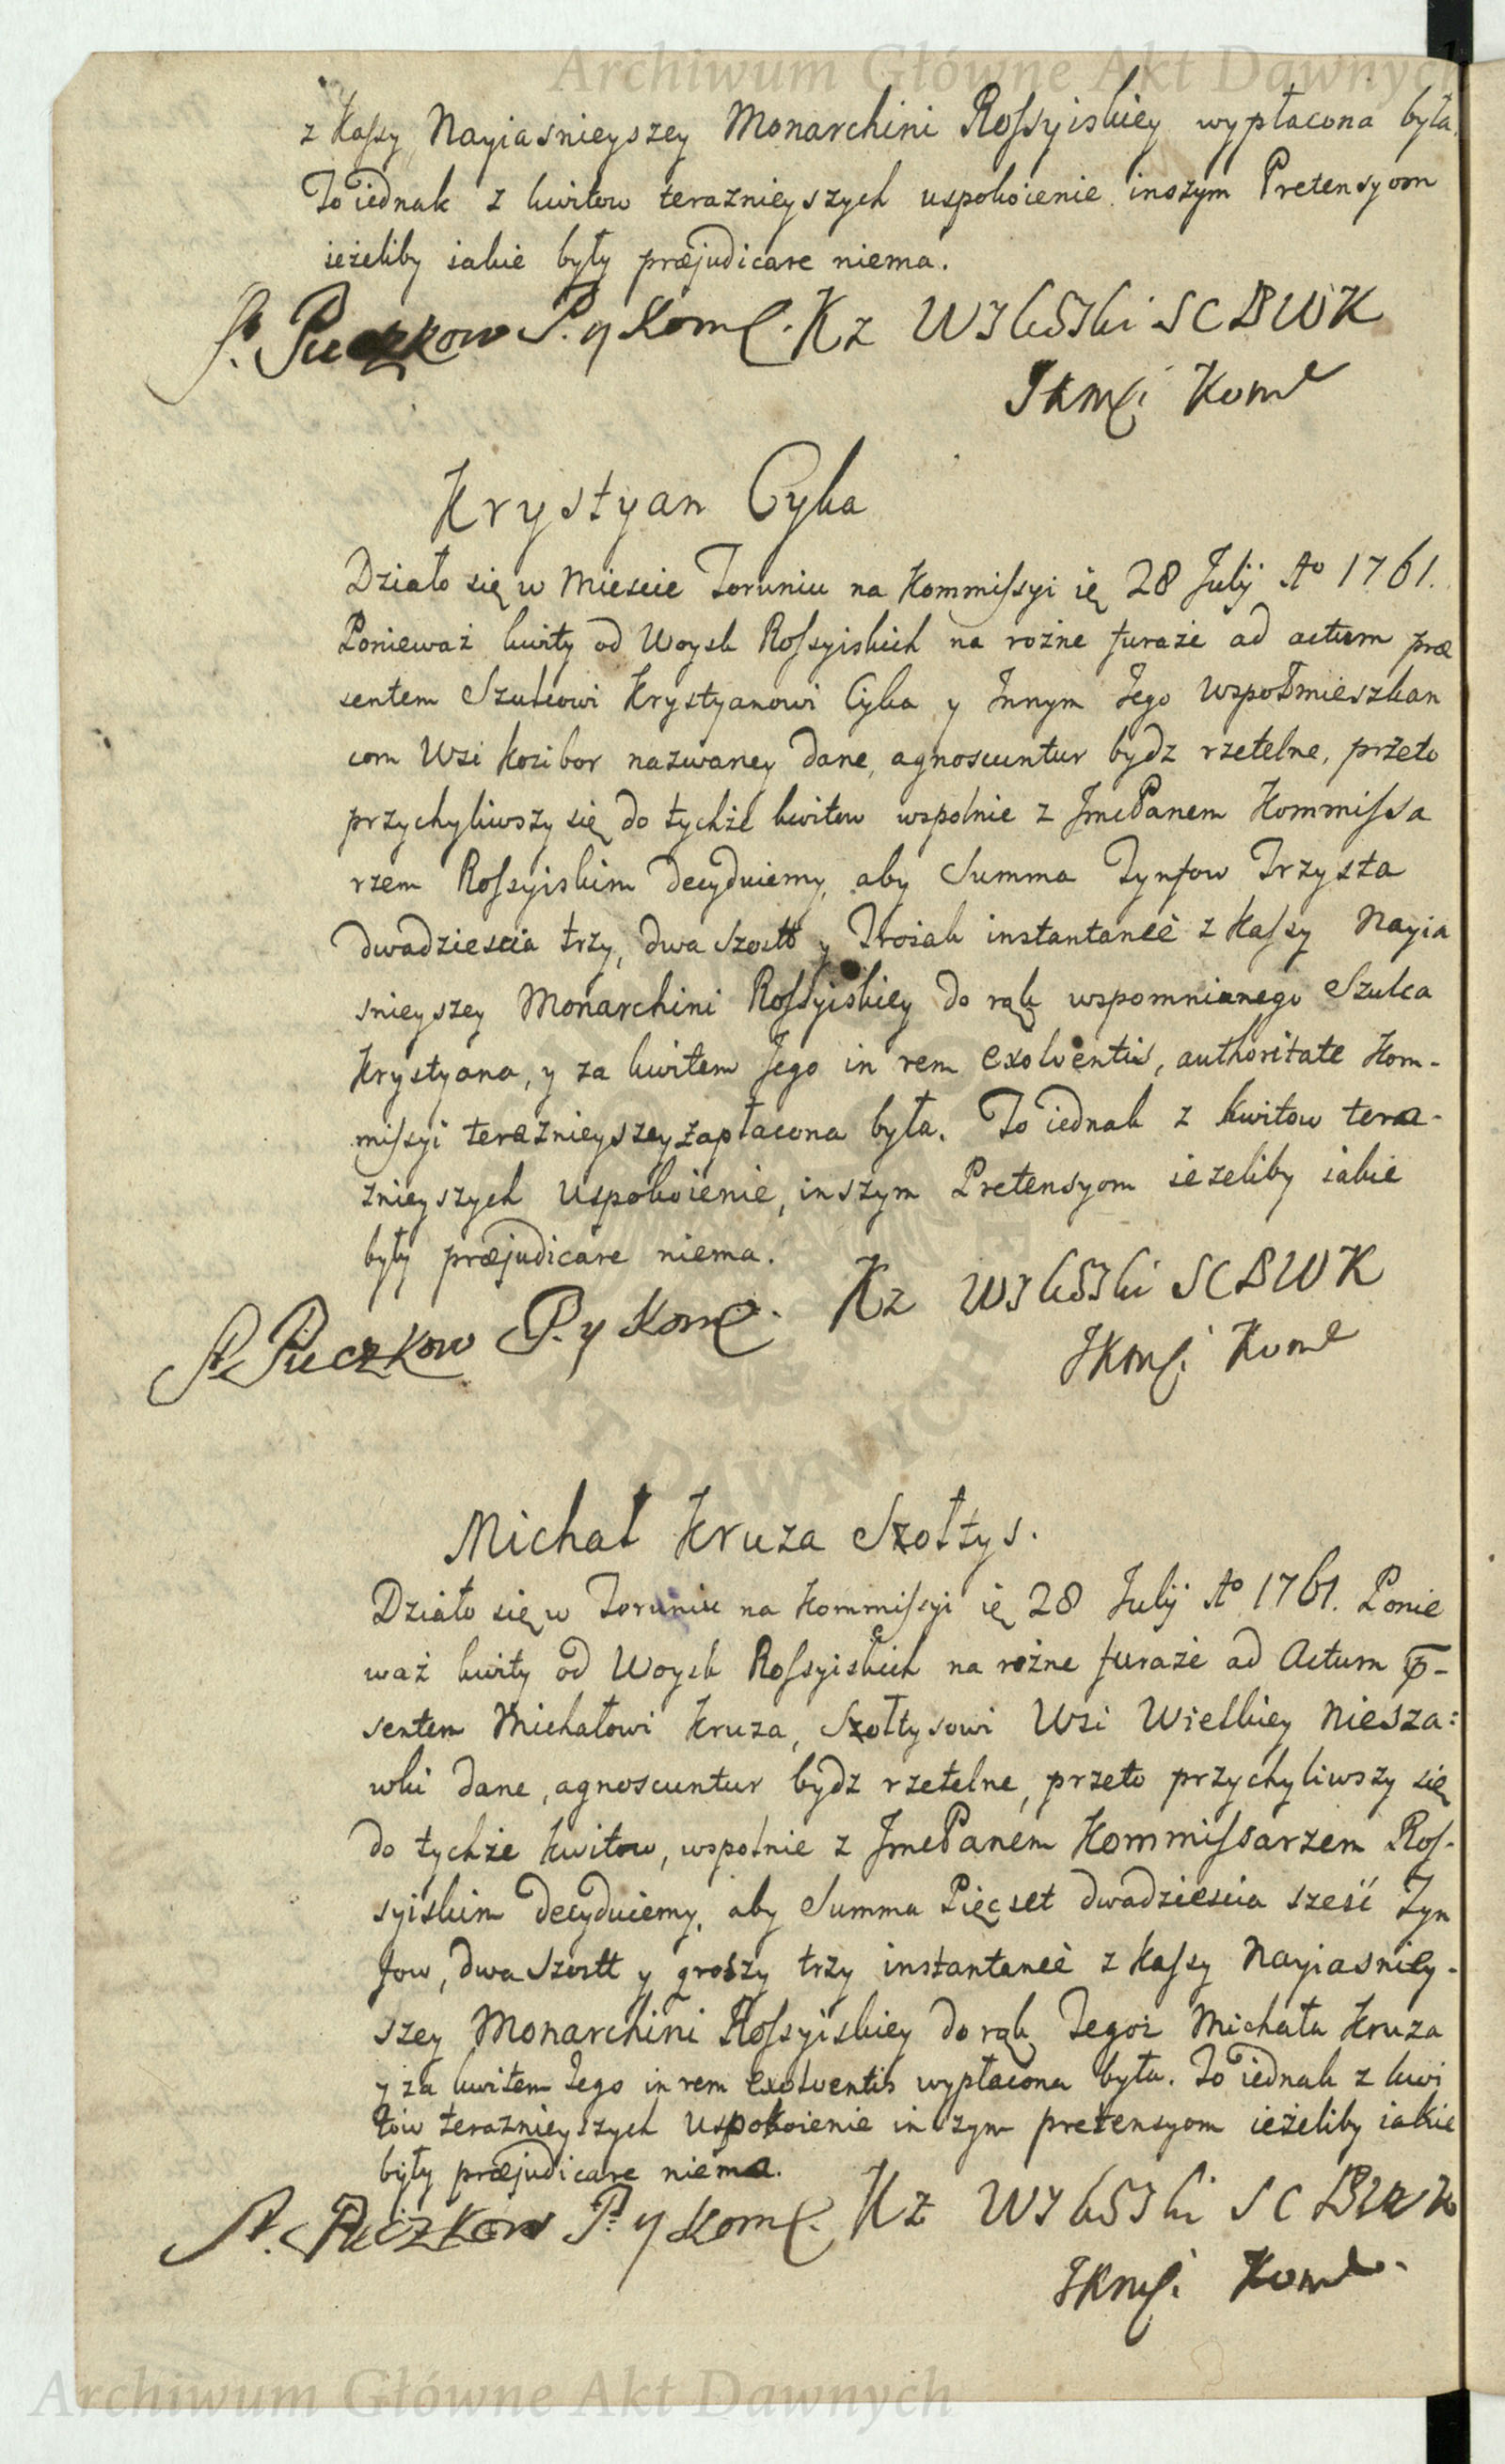 Archiwum Główne Akt Dawnych
z Kassy Nayiasnieyszey Monarchini Rossyiskiey wypłacona była.
To iednak z kwitow teraznieyszych uspokoienie inszym Pretensyom
ieżeliby iakie były præjudicare niema.
P. Puczkow P. y Kom. Kz SCBWK
JKMſi Kom
Krystyan Cyka
Działo się w Miescie Toruniu na Kommissyi ię 28 Julij Ao 1761.
Ponieważ kwity od Woysk Rossyiskich na rożne furaże ad actum præ
sentem Szulcowi Krystyanowi Cyka y Innym Jego Wspołmieszkan
com Wsi Kozibor nazwaney dane, agnoscuntur bydz rzetelne, przeto
przychyliwszy się do tychże kwitow wspolnie z JmcPanem Kommissa
rzem Rossyiskim decyduiemy, aby Summa Tynfow Trzysta
dwadziescia trzy, dwa Szostt y Troiak instantaneè z Kassy Nayia
snieyszey Monarchini Rossyiskiey do rąk wspomnianego Szulca
Krystyana, y za kwitem Jego in rem exolventis, authoritate Kom-
missyi teraznieyszey zapłacona była. To iednak z kwitow tera-
znieyszych uspokoienie, inszym Pretensyom ieżeliby iakie
były præjudicare niema.
P. Puczkow P. y Kom. Kz SCBWK
JKMſi Kom
Michał Kruza Szołtys.
Działo się w Toruniu na Kommissyi ię 28 Julij Ao 1761. Ponie
waż kwity od Woysk Rossyiskich na rożne furaże ad Actum p-
sentem Michałowi Kruza, Szołtysowi Wsi Wielkiey Niesza:
wki dane, agnoscuntur bydz rzetelne, przeto przychyliwszy się
do tychże kwitow, wspolnie z JmcPanem Kommissarzem Ros-
syiskim decyduiemy, aby Summa Pięcset dwadziescia sześć Tyn
fow, dwa Szostt y groszy trzy instantaneè z Kassy Nayiasniey-
szey Monarchini Rossyiskiey do rąk Tegoż Michała Kruza
y za kwitem Jego in rem exolventis wypłacona była. To iednak z kwi
tów teraznieyszych uspokoienie inszym pretensyom ieżeliby iakie
były præjudicare niema.
P. Puczkow P. y Kom. Kz SCBWK
JKMſi Kom
Archiwum Główne Akt Dawnych